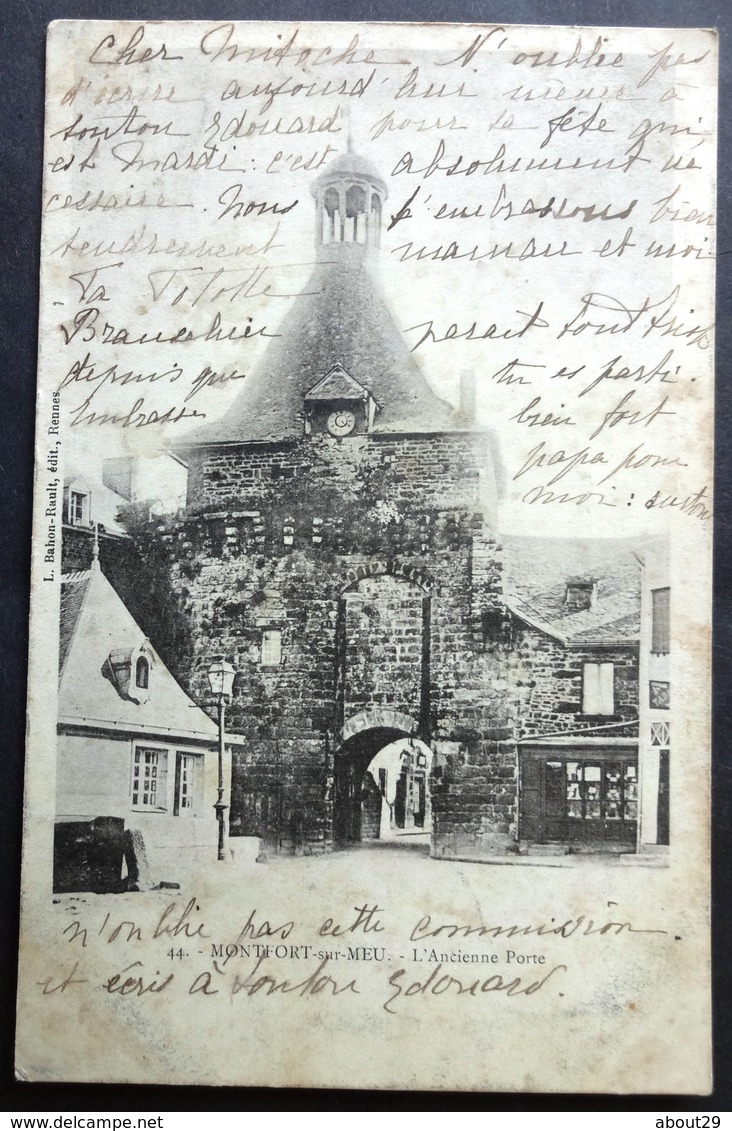 Cher Mitoche N'oublie pas
d'écrire aujourd'hui même à
tonton Edouard pour sa fête qui
est Mardi : c'est absolument né
cessaire. Nous t'embrassons bien
tendrement maman et moi
Ta Tototte
Branschier parait tout triste
depuis que tu es parti.
Embrasse bien fort
papa pour
moi : surtout
n'oublie pas cette commission
44. - MONTFORT-sur-MEU. - L'Ancienne Porte
et écris à tonton Edouard.
L. Bahon-Rault, édit., Rennes
about29